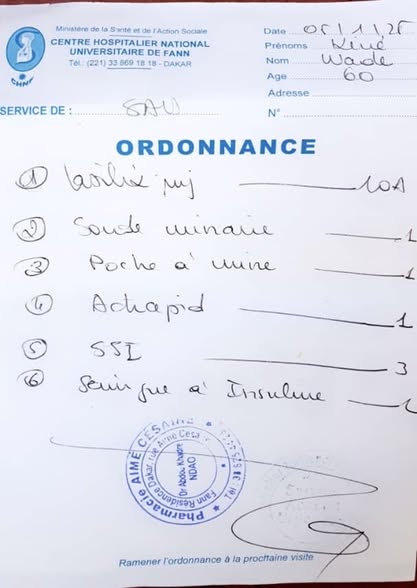 Ministère de la Santé et de l'Action Sociale
CENTRE HOSPITALIER NATIONAL
UNIVERSITAIRE DE FANN
Tél.: (221) 33 869 18 18 - DAKAR
CHNF
SERVICE DE : SAU
Date 05/11/25
Prénoms Kiné
Nom Wade
Age 60
Adresse
N°
ORDONNANCE
① Lasilix inj 10A
② Sonde urinaire 1
③ Poche à urine 1
④ Actrapid 1
⑤ SSI 3
⑥ Seringue à Insuline
Pharmacie AIMÉ CÉSAIRE
Fann Résidence Dakar, rue Aimé Césaire
Dr Abdou Khadre
NDAO
Ramener l'ordonnance à la prochaine visite